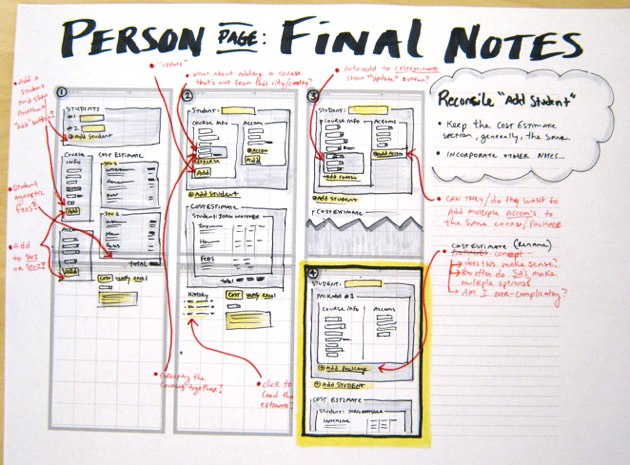 PERSON PAGE: FINAL NOTES
"Update"
• What about adding a course that's not from this city/country?
• Auto-add to cost estimate
show "Update" button?
• Add a
student
"Add" button?
• Student
agnostic
Fees?
• Add
to Stu 1
or Stu 2?
①
STUDENTS
#1
#2
⊕ Add Student
Course
Info
Add
Accom
Add
COST ESTIMATE
Stu 1
Stu 2
TOTAL
COST
Verify Email
②
Student:
Course Info
Accom
⊕ Accom
Add
Add
⊕ Add Student
COST ESTIMATE
Student:
FEES
TOTAL
History
COST
Verify Email
• Grouping the
courses together?
• click to
load the
estimate?
③
STUDENT:
Course Info
Accoms
⊕ Add Accom
Add Course
⊕ Add STUDENT
COST ESTIMATE
④
STUDENT:
PACKAGE #1
Course Info
Accoms
⊕ Add Package
⊕ Add STUDENT
COST ESTIMATE
Student:
Reconcile "Add Student"
• Keep the Cost Estimate
section, generally, the same.
• INCORPORATE OTHER NOTES...
• CAN they/do they want to
Add multiple Accom's to
the same course/package
• COST ESTIMATE (RENAME)
concept
Does this make sense?
How often do SA's make
multiple options?
Am I over-complicating?